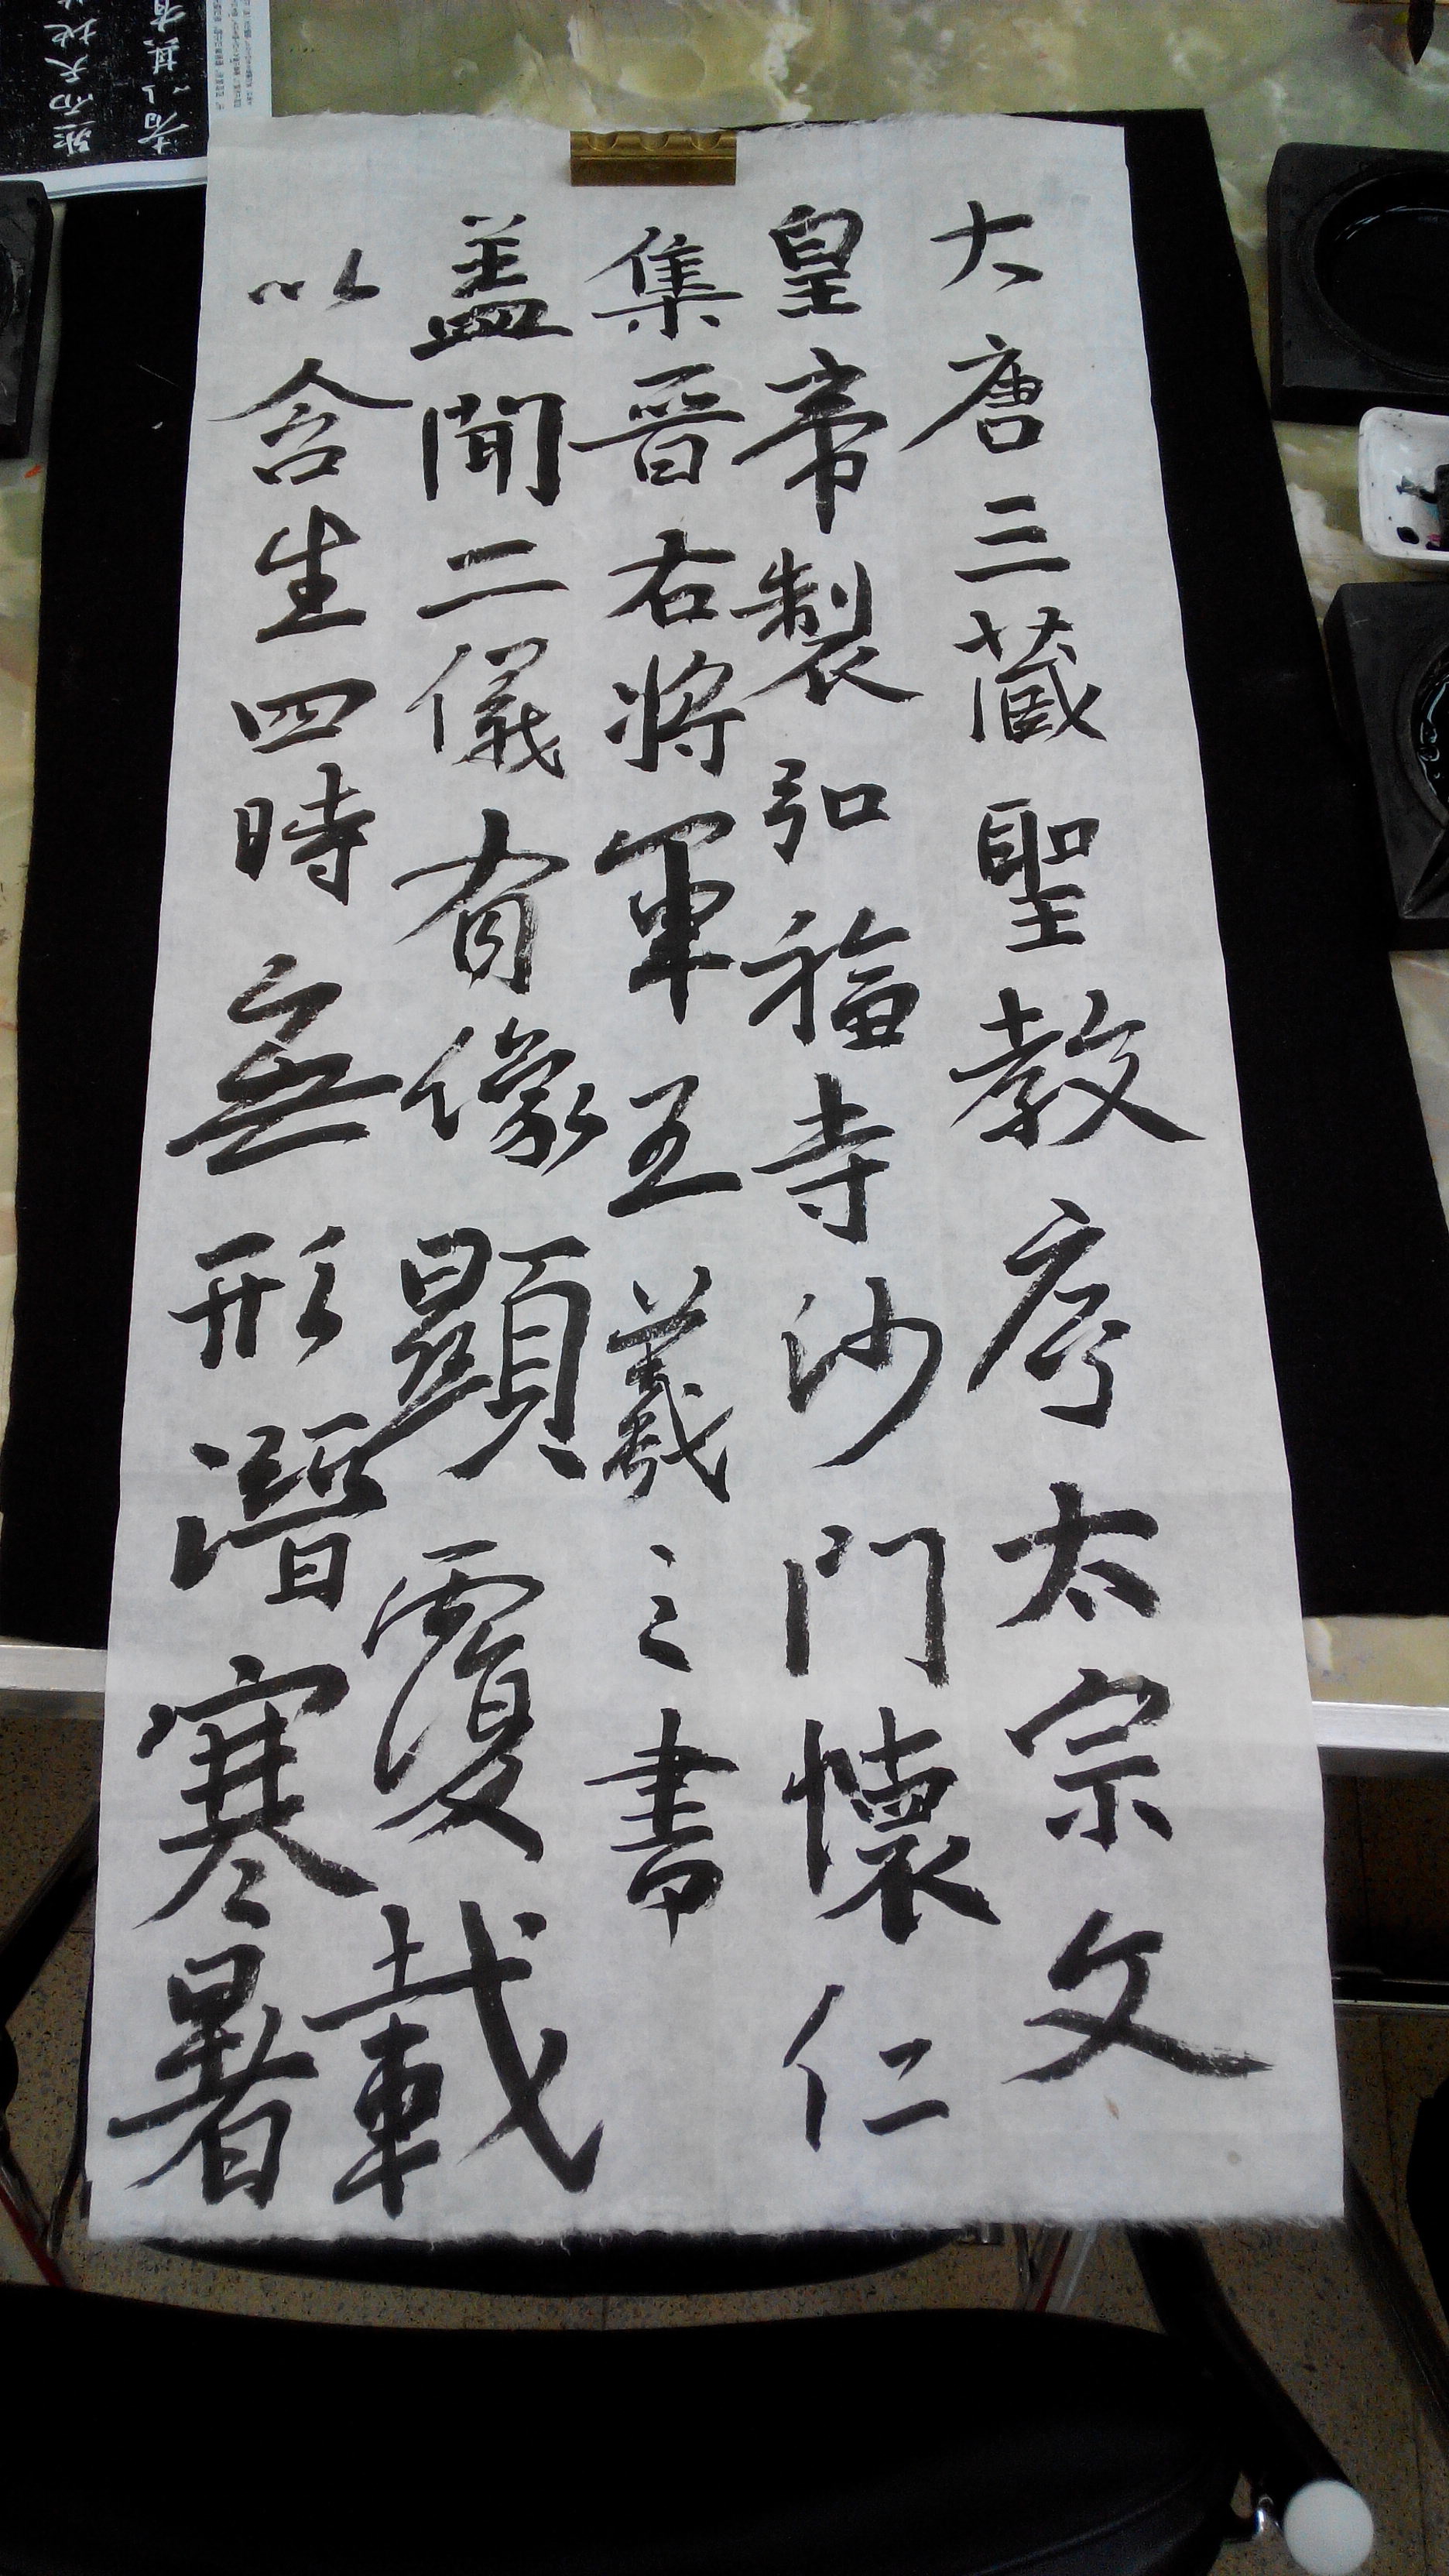 大唐三藏聖教序太宗文
皇帝製弘福寺沙門懷仁
集晉右將軍王羲之書
蓋聞二儀有像顯覆載
以含生四時無形潛寒暑